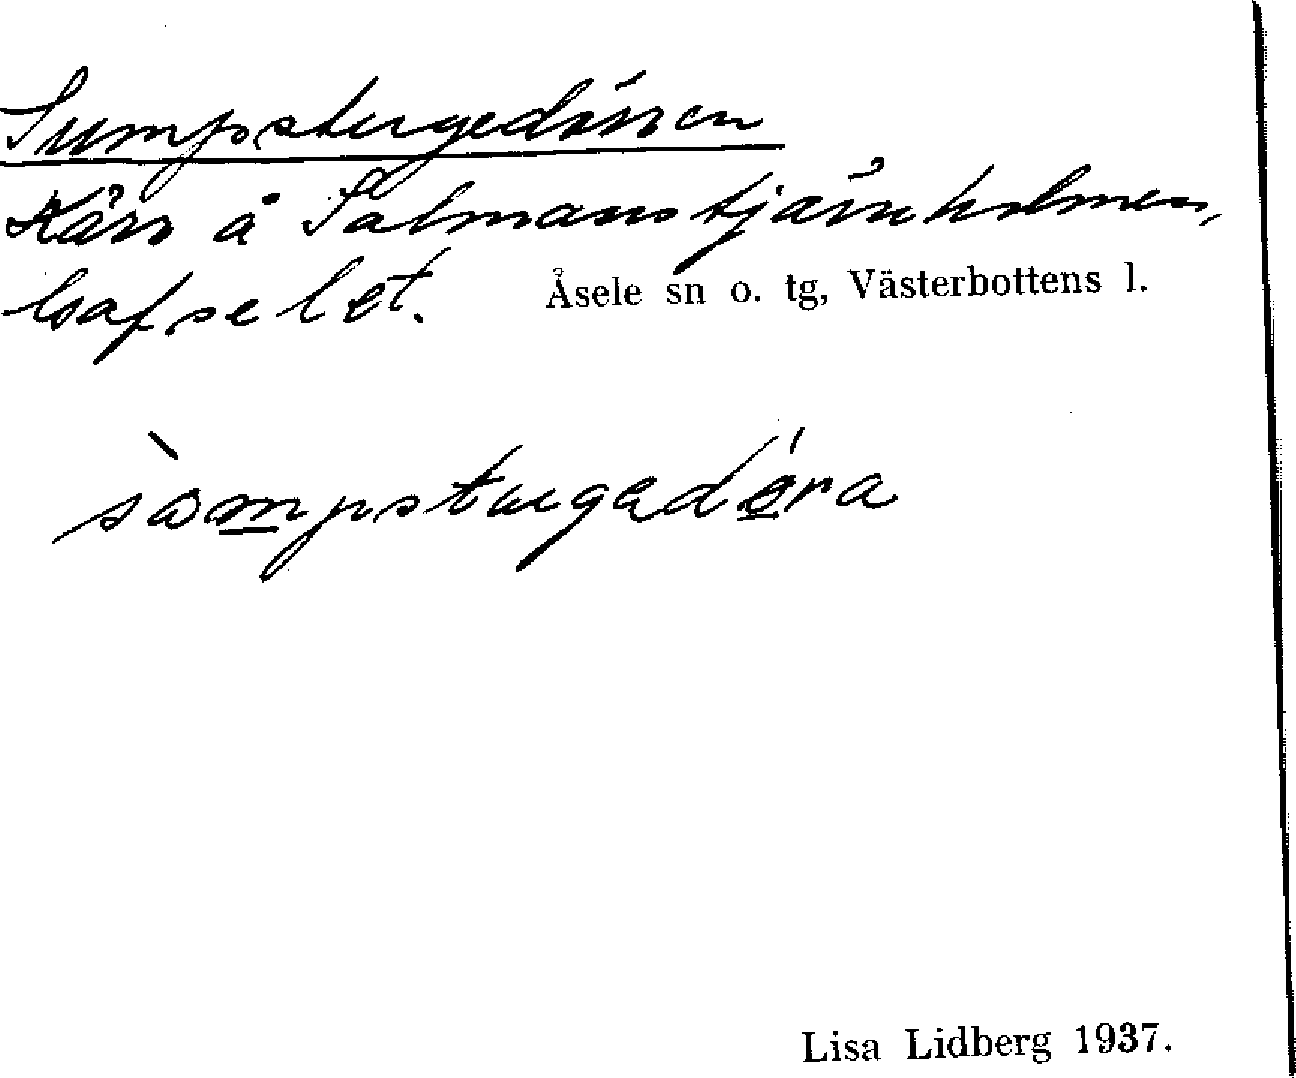 Sumpstugedörren
Kärr å Salmanstjärnholmen,
Gafselet. Åsele sn o. tg, Västerbottens l.
sòmpstugadǿra
Lisa Lidberg 1937.